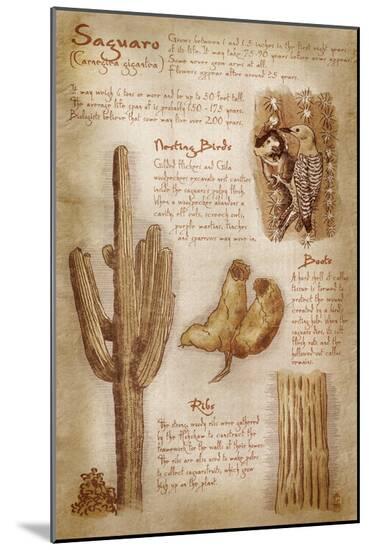 Saguaro
(Carnegiea gigantea)
Grows between 1 and 1.5 inches in the first eight years
of its life. It may take 75-90 years before arms appear.
Some never grow arms at all.
Flowers appear after around 35 years.
It may weigh 6 tons or more and be up to 50 feet tall.
The average life span of is probably 150 - 175 years.
Biologists believe that some may live over 200 years.
Nesting Birds
Gilded flickers and Gila
woodpeckers excavate nest cavities
inside the saguaro's pulpy flesh.
When a woodpecker abandons a
cavity, elf owls, screech owls,
purple martins, finches
and sparrows may move in.
Boots
A hard shell of callus
tissue is formed to
protect the wound
created by a bird's
nesting hole. When the
saguaro dies, its soft
flesh rots and the
hollowed out callus
remains.
Ribs
The strong, woody ribs were gathered
by the Hohokam to construct the
framework for the walls of their homes.
The ribs are also used to make poles
to collect saguarofruits, which grow
high up on the plant.